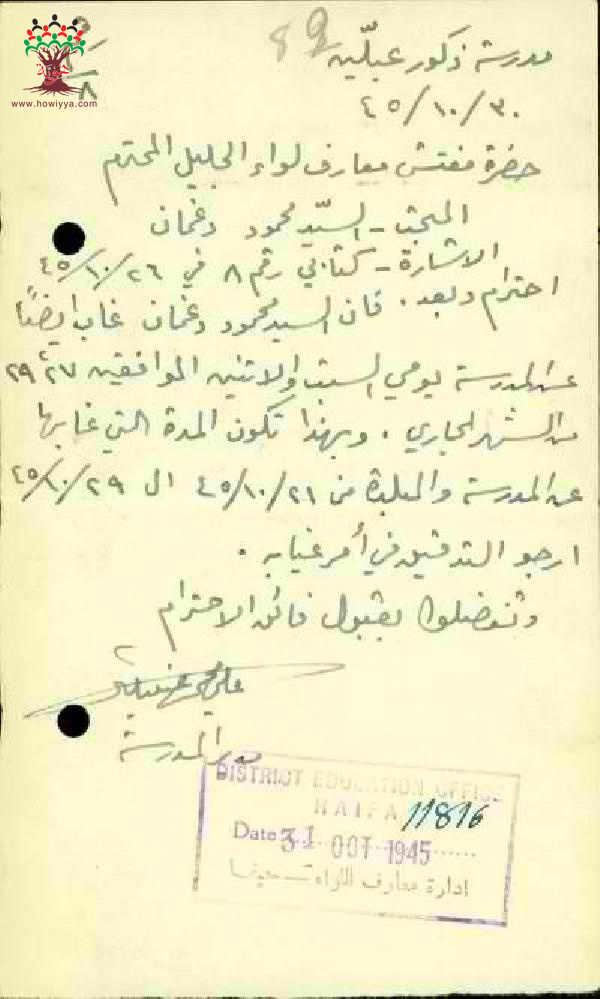 82
www.howiyya.com
مدرسة ذكور عبلّين
٤٥/١٠/٣٠
حضرة مفتش معارف لواء الجليل المحترم
المبحث - السيّد محمود دغمان
الاشارة - كتابي رقم ٨ في ٤٥/١٠/٢٦
احترام وبعد . فان السيد محمود دغمان غاب ايضًا
عن المدرسة يومي السبت والاثنين الموافقين ٢٧ و ٢٩
من الشهر الجاري . وبهذا تكون المدة التي غابها
عن المدرسة والبلدة من ٤٥/١٠/٢١ الى ٤٥/١٠/٢٩
ارجو التدقيق في أمر غيابه .
وتفضلوا بقبول فائق الاحترام
علي
مدير المدرسة
DISTRICT EDUCATION OFFICE
HAIFA 11816
Date 31 OCT 1945
ادارة معارف اللواء - حيفا